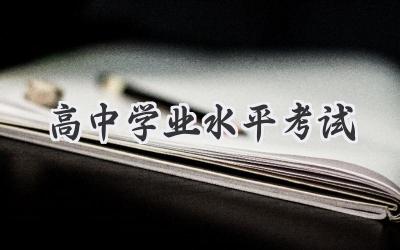 高中学业水平考试